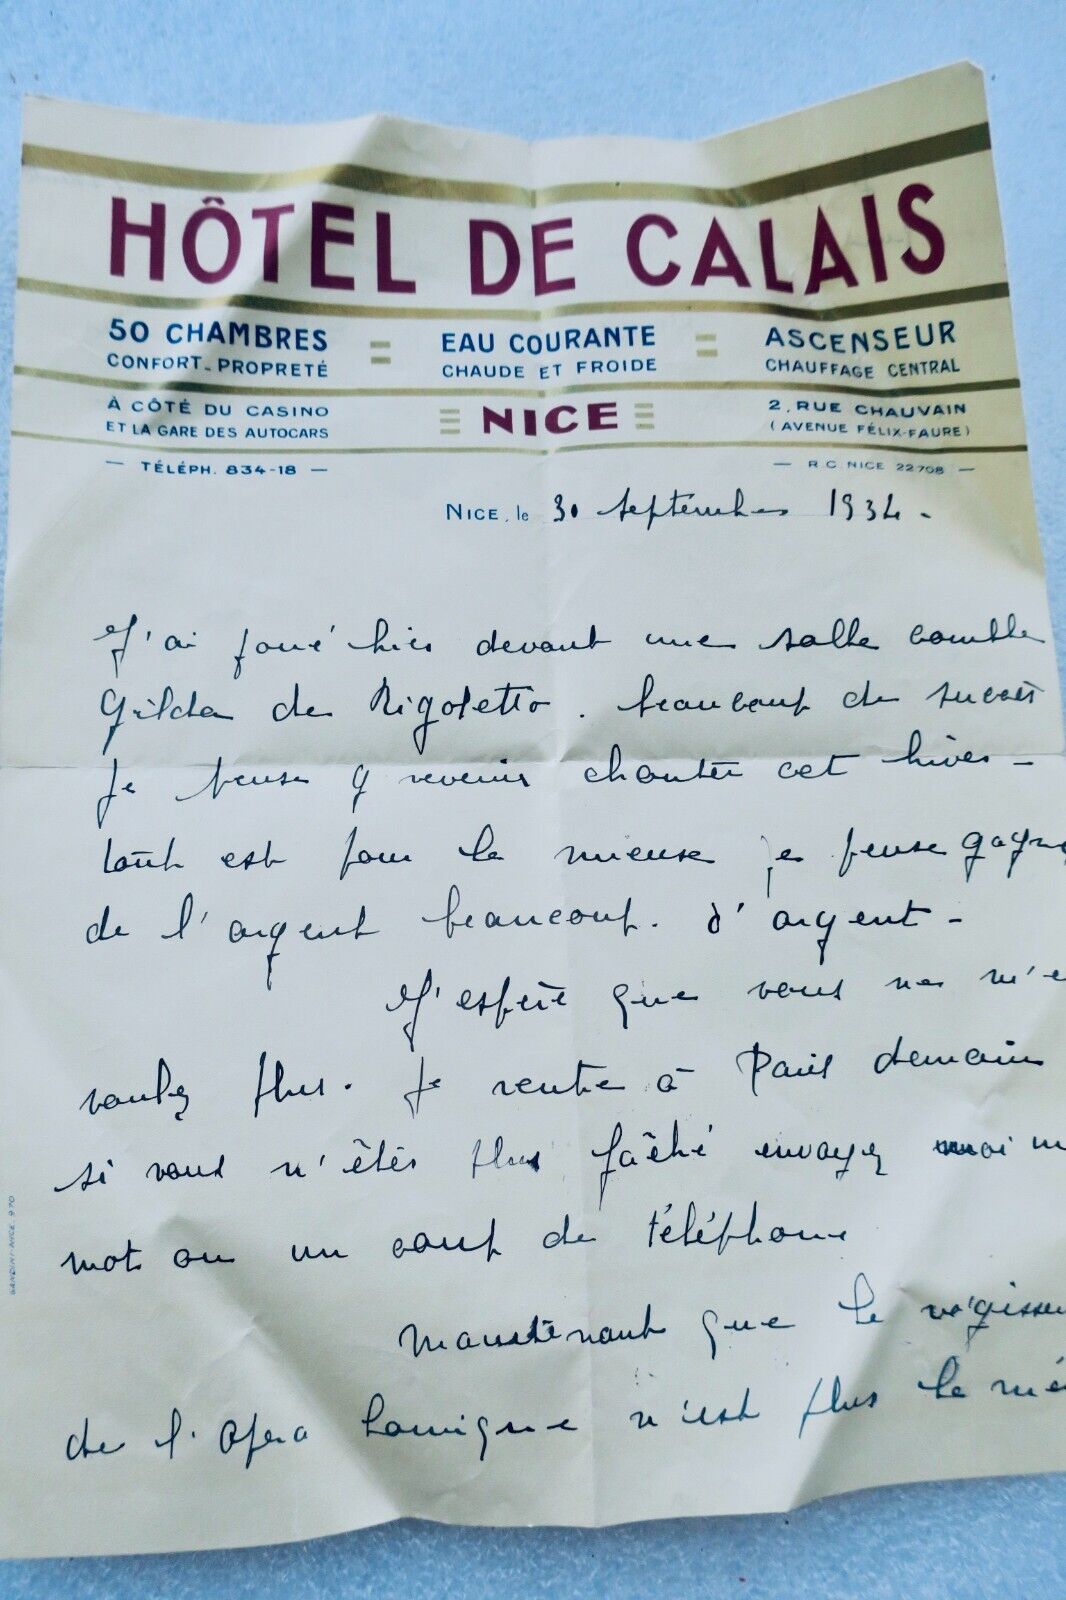 HÔTEL DE CALAIS
50 CHAMBRES = EAU COURANTE = ASCENSEUR
CONFORT - PROPRETÉ CHAUDE ET FROIDE CHAUFFAGE CENTRAL
À CÔTÉ DU CASINO NICE 2, RUE CHAUVAIN
ET LA GARE DES AUTOCARS (AVENUE FÉLIX-FAURE)
— TÉLÉPH. 834-18 — — R.C. NICE 22708 —
NICE, le 30 septembre 1934.
J'ai joué hier devant une salle comble
Gilda de Rigoletto. beaucoup de succès
je pense y revenir chanter cet hiver -
tout est pour le mieux je pense gagne
de l'argent beaucoup. d'argent -
J'espère que vous ne m'e
voulez plus. je rentre à Paris demain
si vous n'êtes plus fâché envoyez moi un
mot ou un coup de téléphone
maintenant que le régisseu
de l'Opéra Comique n'est plus le mê
GANDINI-NICE 970